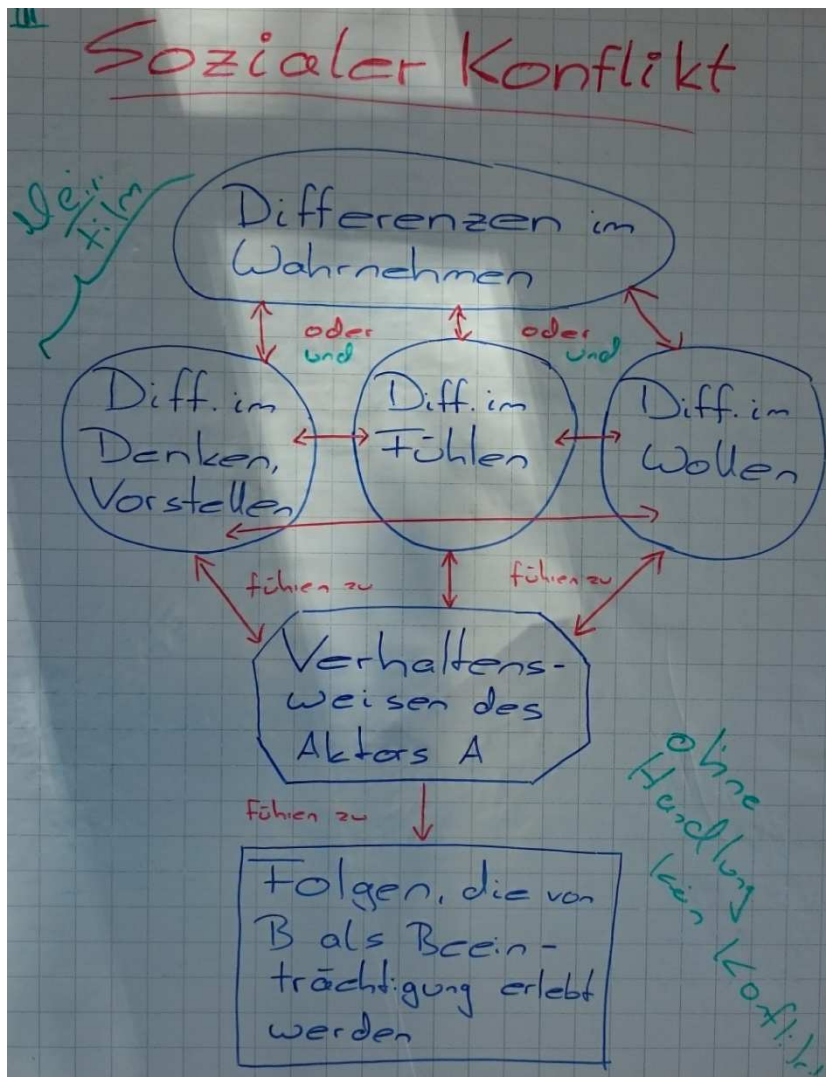 III
Sozialer Konflikt
Film
Differenzen im
Wahrnehmen
oder
und
oder
und
Diff. im
Denken,
Vorstellen
Diff. im
Fühlen
Diff. im
Wollen
führen zu
führen zu
Verhaltens-
weisen des
Aktors A
führen zu
Folgen, die von
B als Beein-
trächtigung erlebt
werden
ohne
Handlung
kein Konflikt